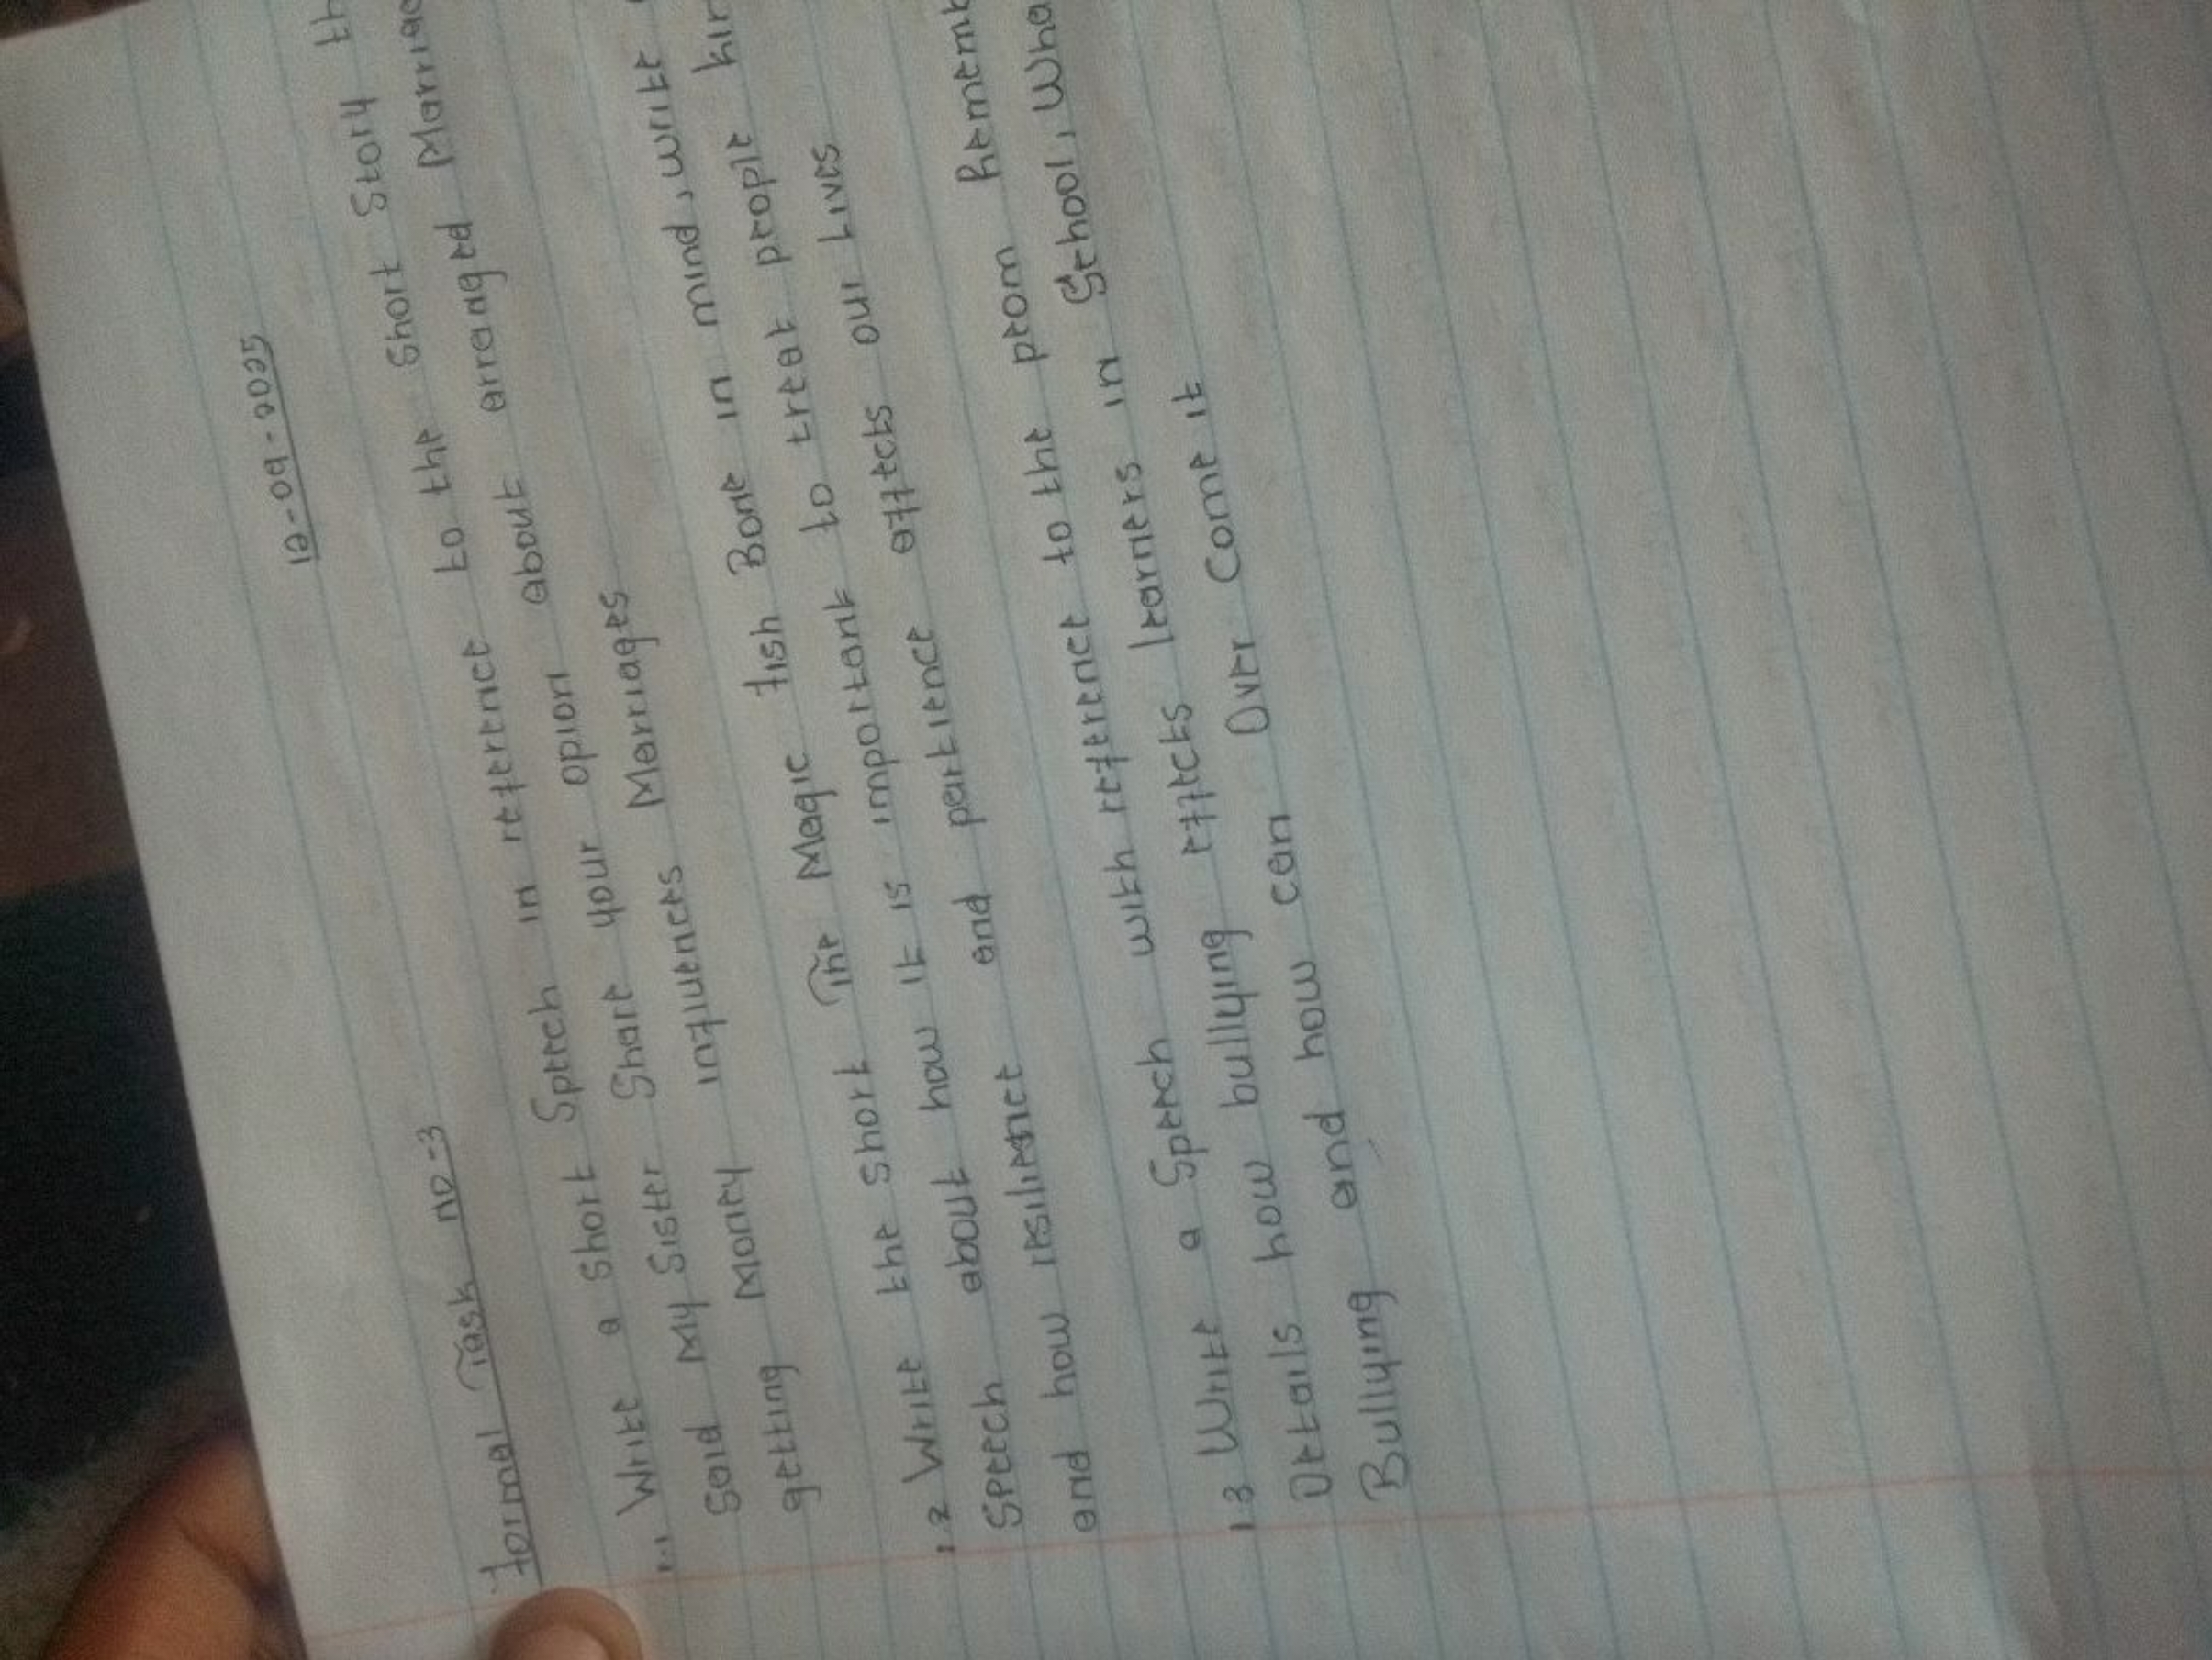 12-09-2025
formal Task no-3
1.1 Write a short Speech in reference to the Short Story
Said My Sister Share your opion about arranged
getting Money influences Marriages
1.2 Write the short The Magic fish Bone in mind, write
Speech about how it is important to treat people
and how resilience and partience effects our Lives
1.3 Write a Speech with reference to the peom
Details how bullying effects learners in School,
Bullying and how can Over Come it